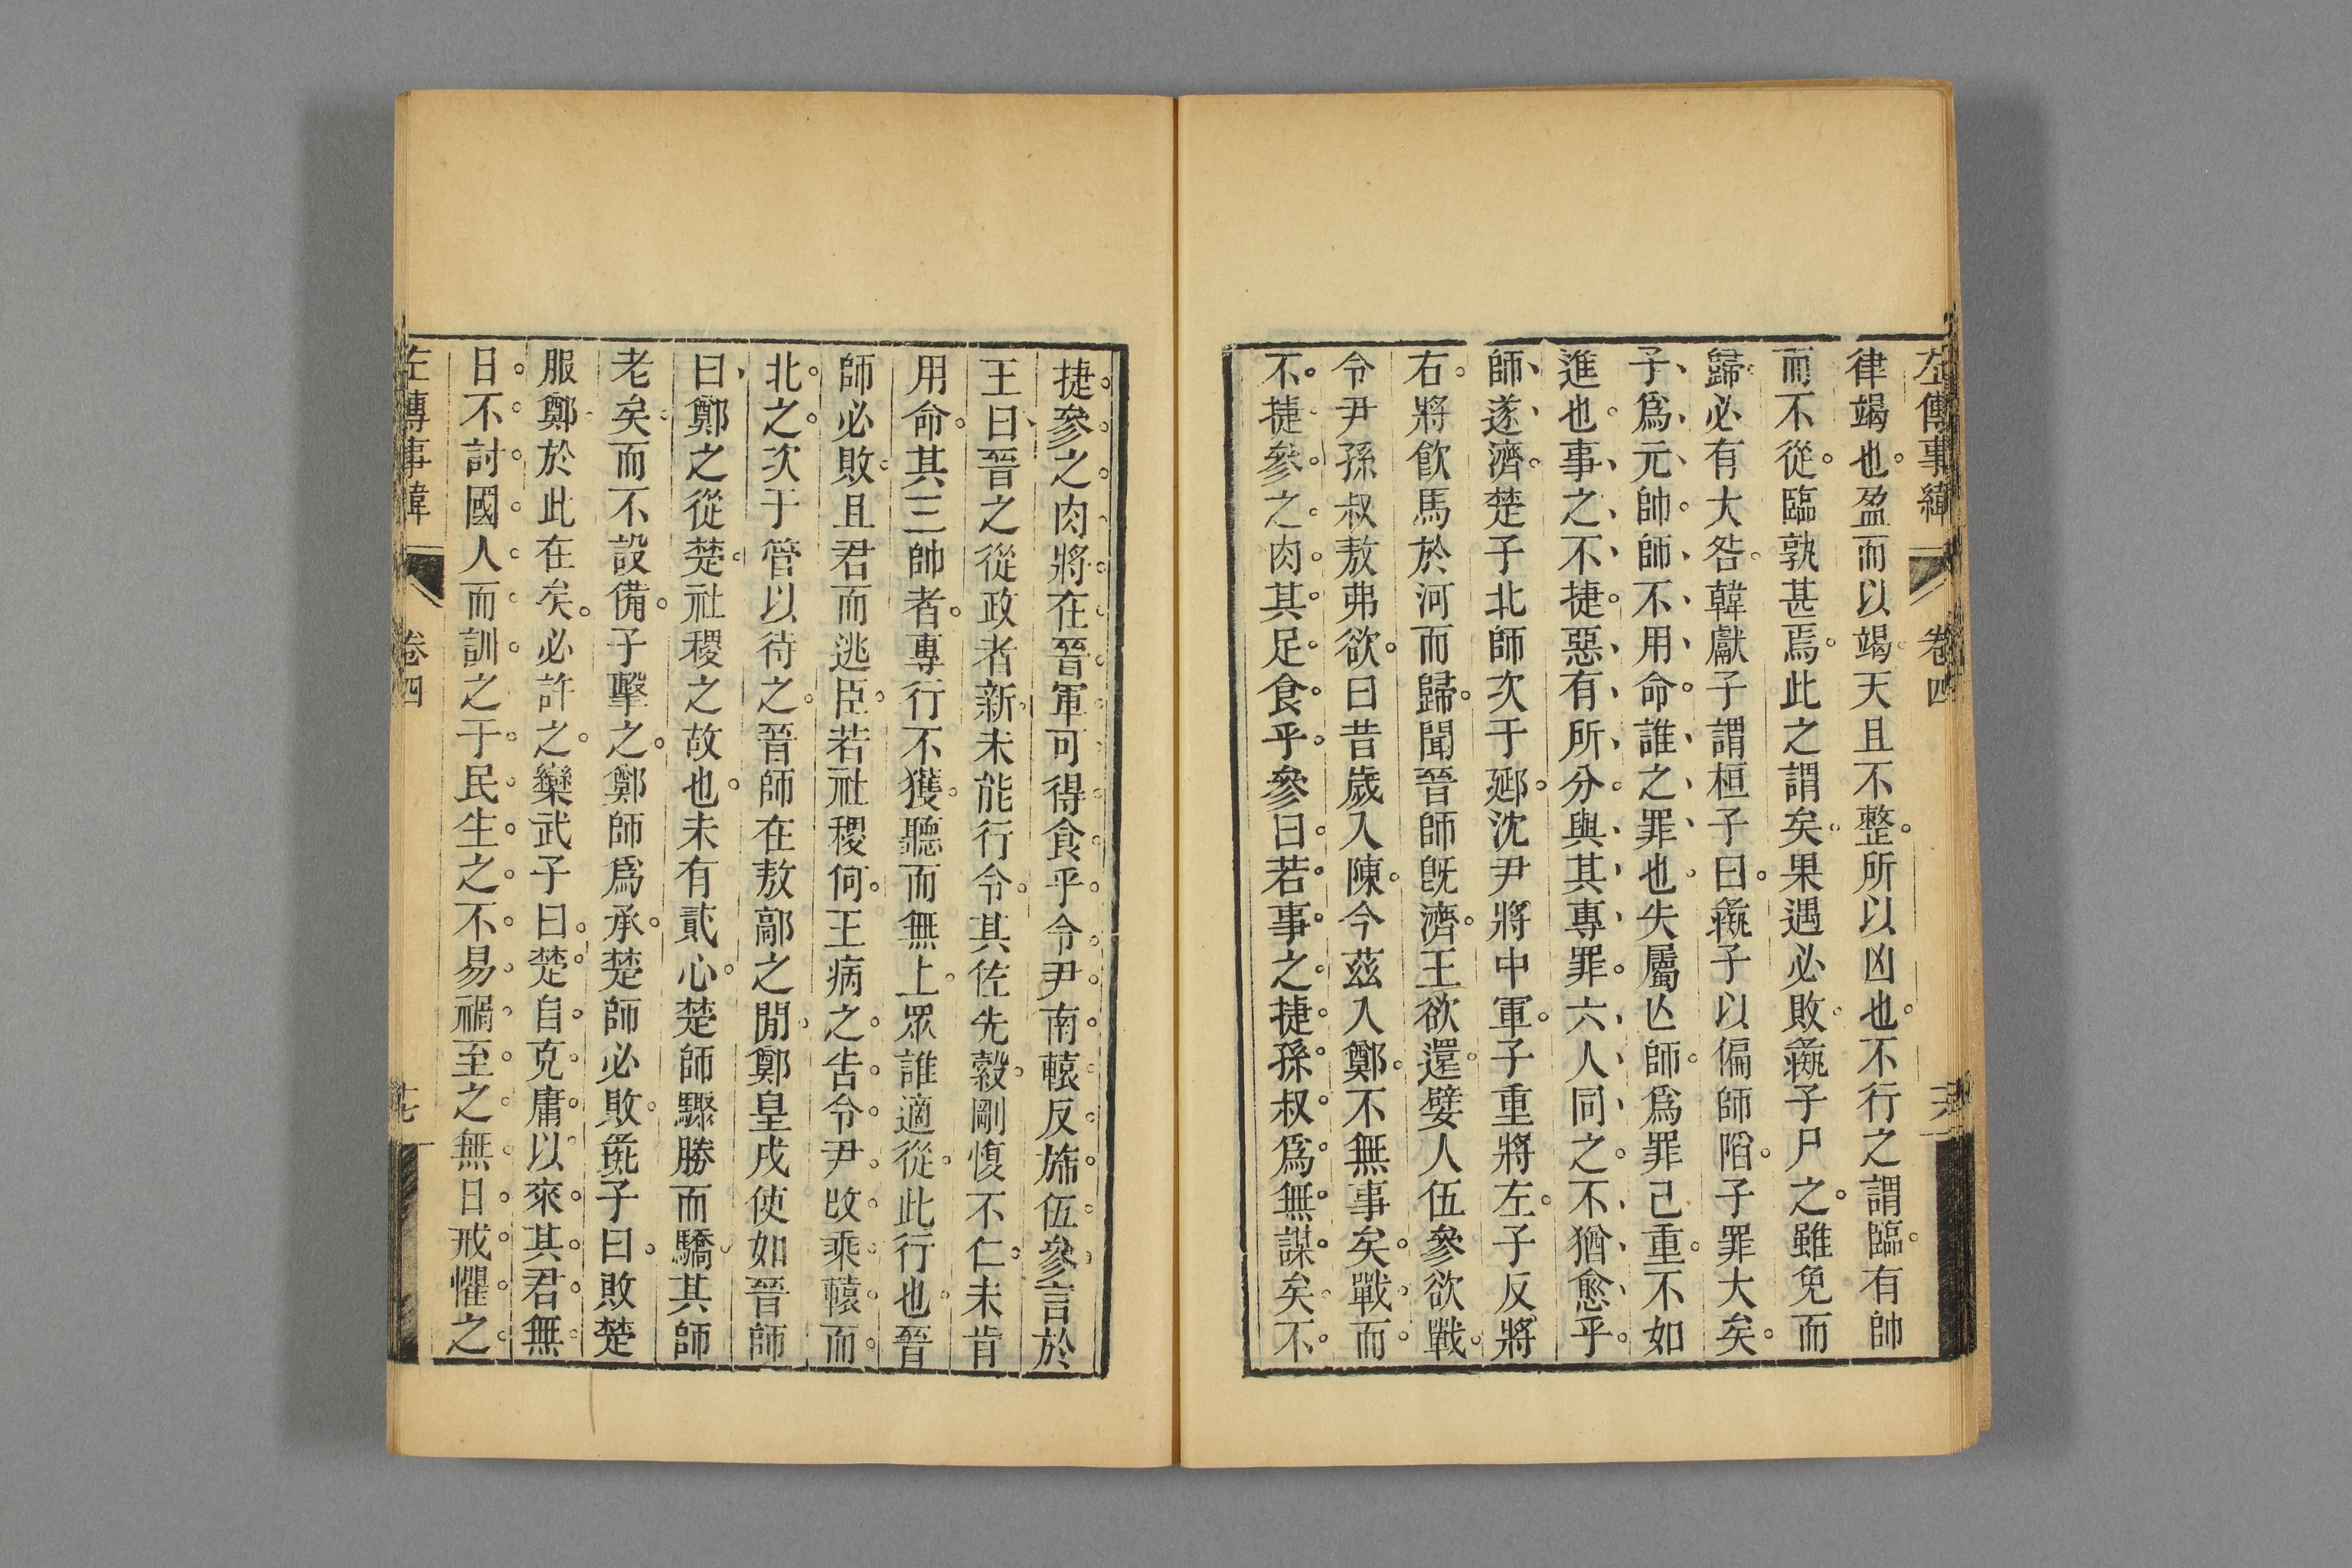 左傳事緯
卷四
律竭也盈而以竭夭且不整所以凶也不行之謂臨有帥
而不從臨孰甚焉此之謂矣果遇必敗彘子尸之雖免而
歸必有大咎韓獻子謂桓子曰彘子以偏師陷子罪大矣
子爲元帥師不用命誰之罪也失屬亾師爲罪已重不如
進也事之不捷惡有所分與其專罪六人同之不猶愈乎
師遂濟楚子北師次于郔沈尹將中軍子重將左子反將
右將飮馬於河而歸聞晉師旣濟王欲還嬖人伍參欲戰
令尹孫叔敖弗欲曰昔歲入陳今茲入鄭不無事矣戰而
不捷參之肉其足食乎參曰若事之捷孫叔爲無謀矣不
捷參之肉將在晉軍可得食乎令尹南轅反旆伍參言於
王曰晉之從政者新未能行令其佐先縠剛愎不仁未肯
用命其三帥者專行不獲聽而無上眾誰適從此行也晉
師必敗且君而逃臣若社稷何王病之告令尹改乘轅而
北之次于管以待之晉師在敖鄗之閒鄭皇戌使如晉師
曰鄭之從楚社稷之故也未有貳心楚師驟勝而驕其師
老矣而不設備子擊之鄭師爲承楚師必敗彘子曰敗楚
服鄭於此在矣必許之欒武子曰楚自克庸以來其君無
日不討國人而訓之于民生之不易禍至之無日戒懼之
左傳事緯
卷四